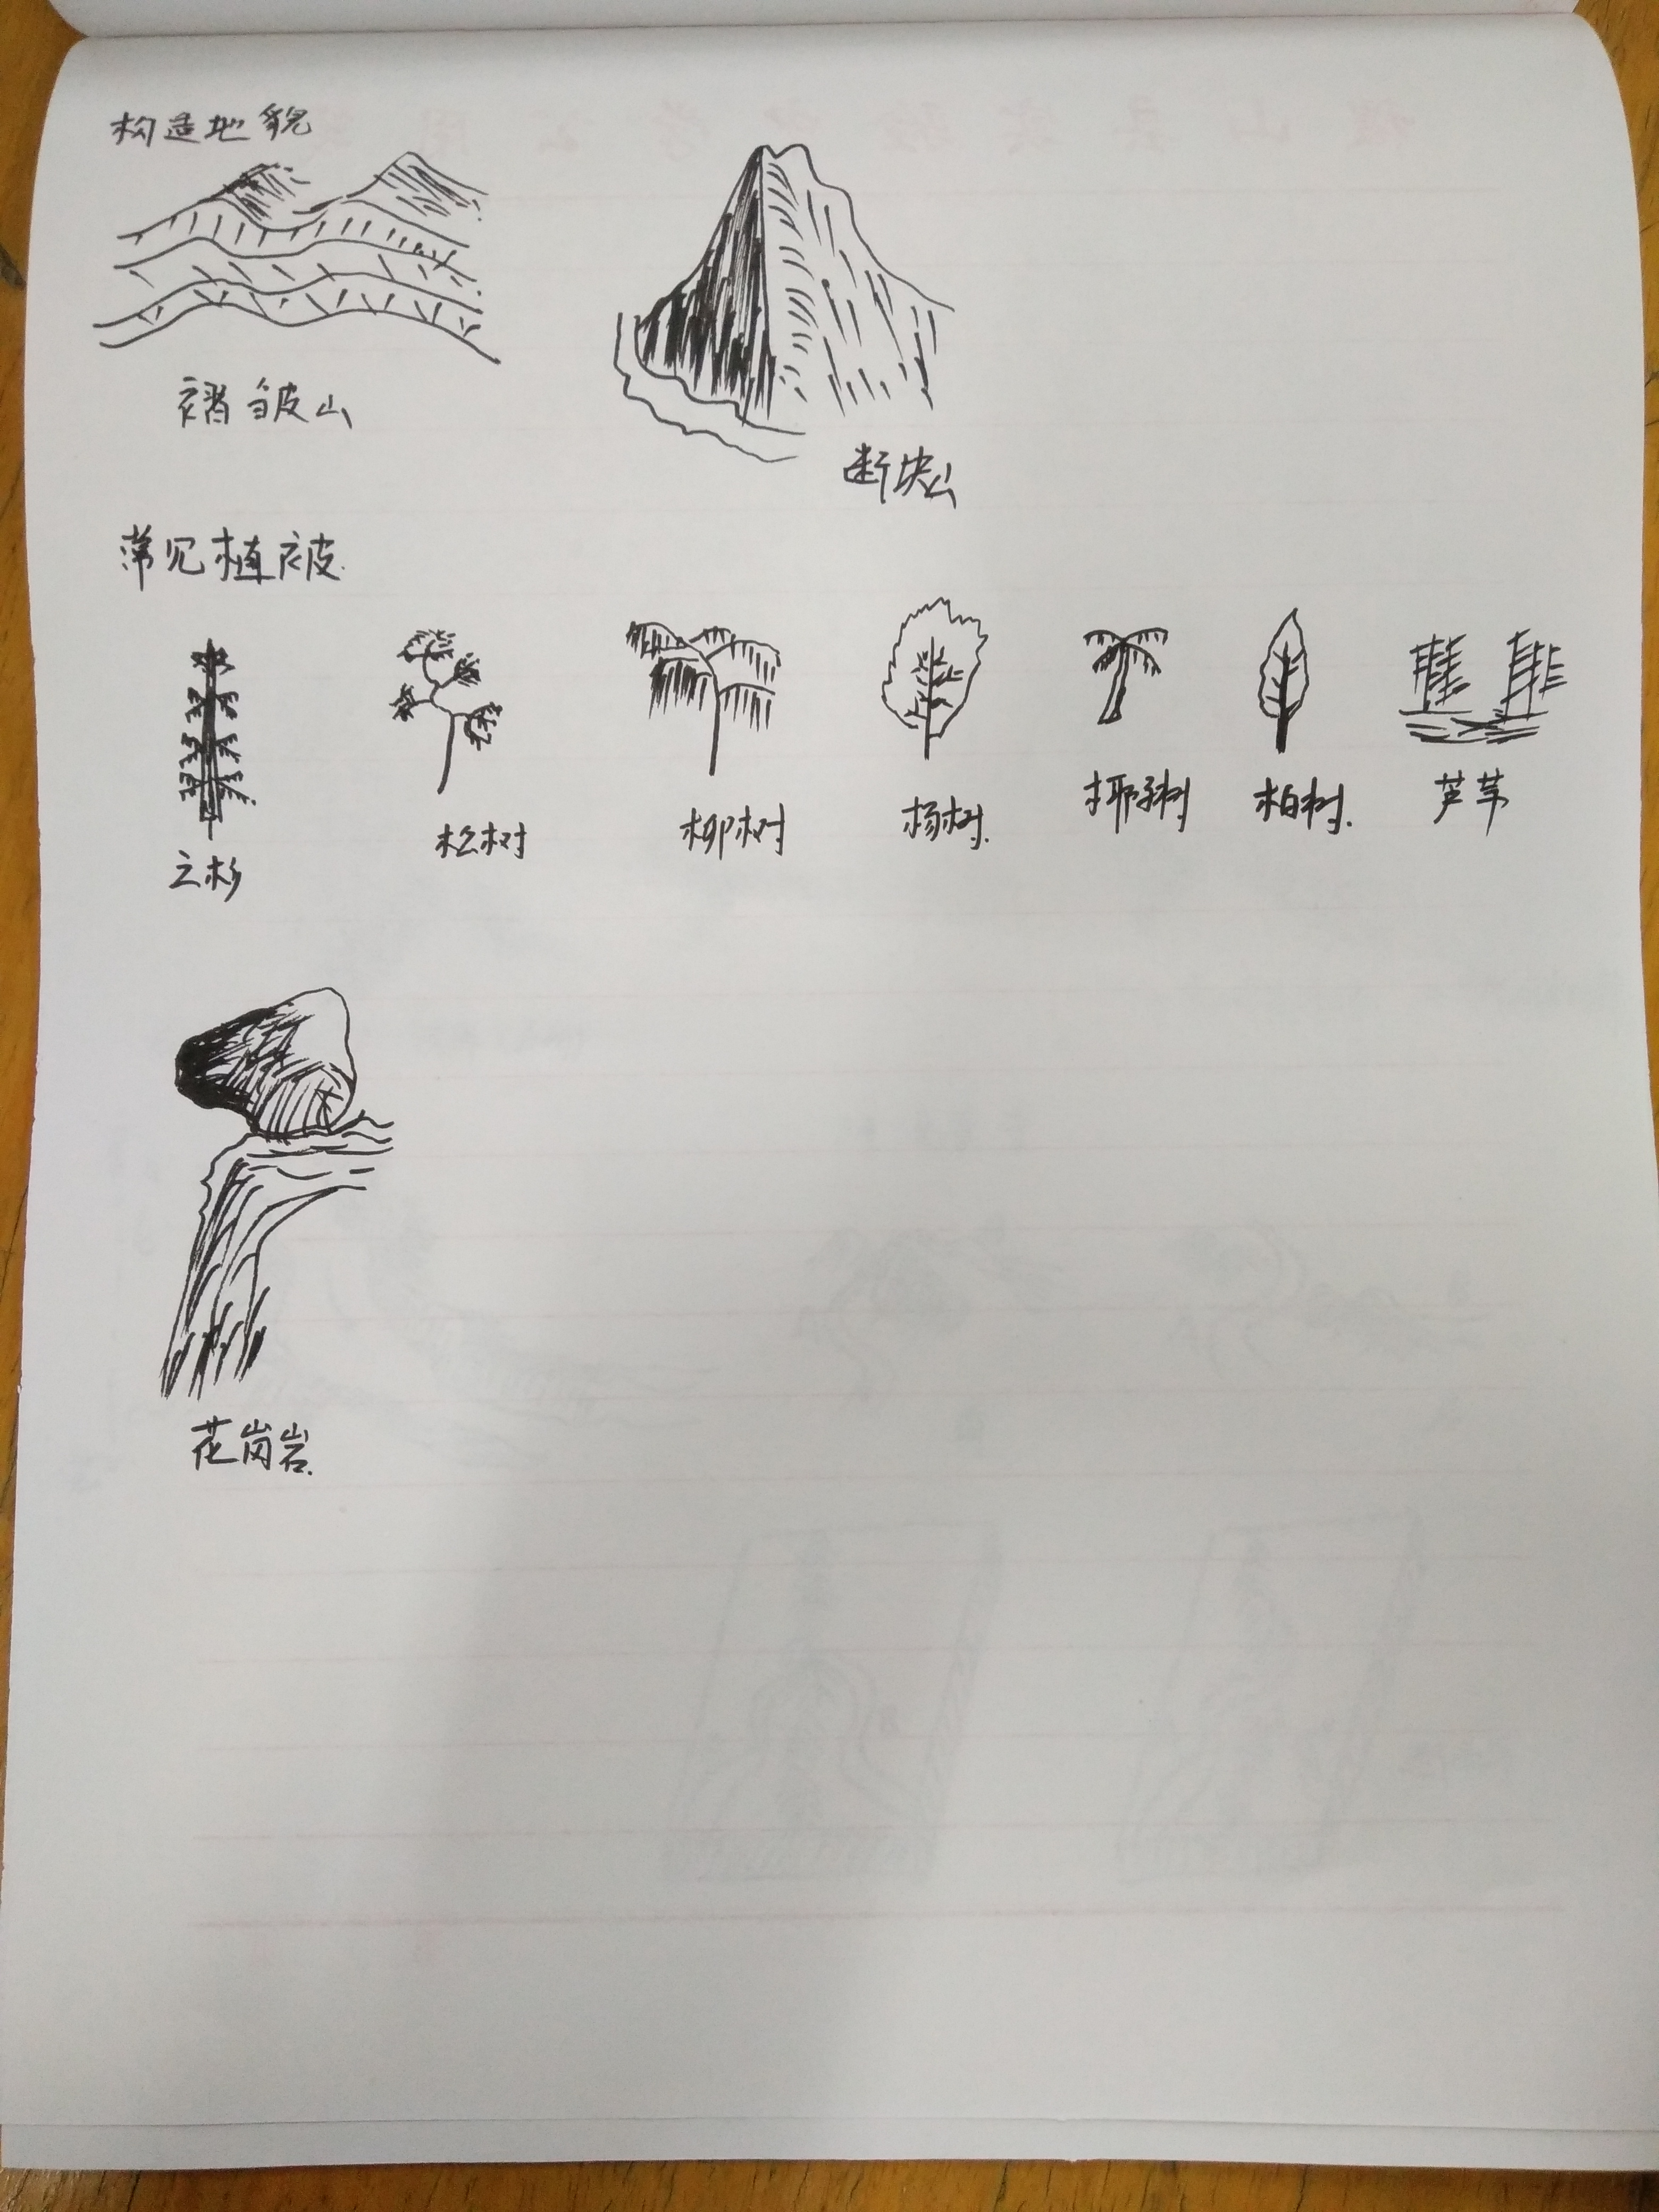 构造地貌
褶皱山
断块山
常见植被.
云杉
松树
柳树
杨树.
椰子树
柏树.
芦苇
花岗岩.